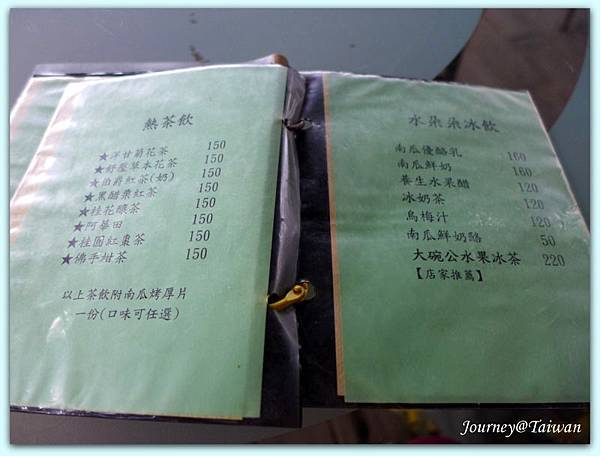 熱茶飲
★洋甘菊花茶 150
★舒壓草本花茶 150
★伯爵紅茶(奶) 150
★黑醋栗紅茶 150
★桂花釀茶 150
★阿華田 150
★桂圓紅棗茶 150
★佛手柑茶 150
以上茶飲附南瓜烤厚片
一份(口味可任選)
水朵朵冰飲
南瓜優酪乳 160
南瓜鮮奶 160
養生水果醋 120
冰奶茶 120
烏梅汁 120
南瓜鮮奶酪 50
大碗公水果冰茶 220
【店家推薦】
Journey@Taiwan